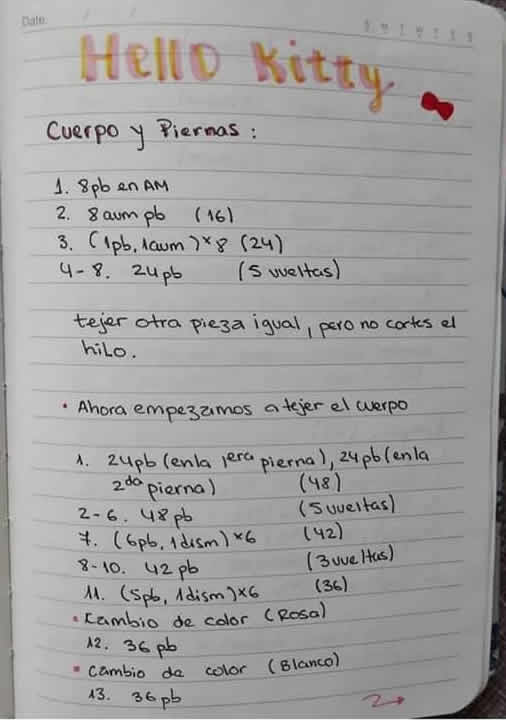 Date: / /
Hello Kitty
Cuerpo y Piernas :
1. 8pb en AM
2. 8 aum pb (16)
3. (1pb, 1aum)*8 (24)
4-8. 24 pb (5 vueltas)
tejer otra pieza igual, pero no cortes el
hilo.
• Ahora empezamos a tejer el cuerpo
1. 24pb (en la 1era pierna), 24pb (en la
2da pierna) (48)
2-6. 48 pb (5 vueltas)
7. (6pb, 1dism)*6 (42)
8-10. 42 pb (3 vueltas)
11. (5pb, 1dism)*6 (36)
• Cambio de color (Rosa)
12. 36 pb
• Cambio de color (Blanco)
13. 36 pb
2→